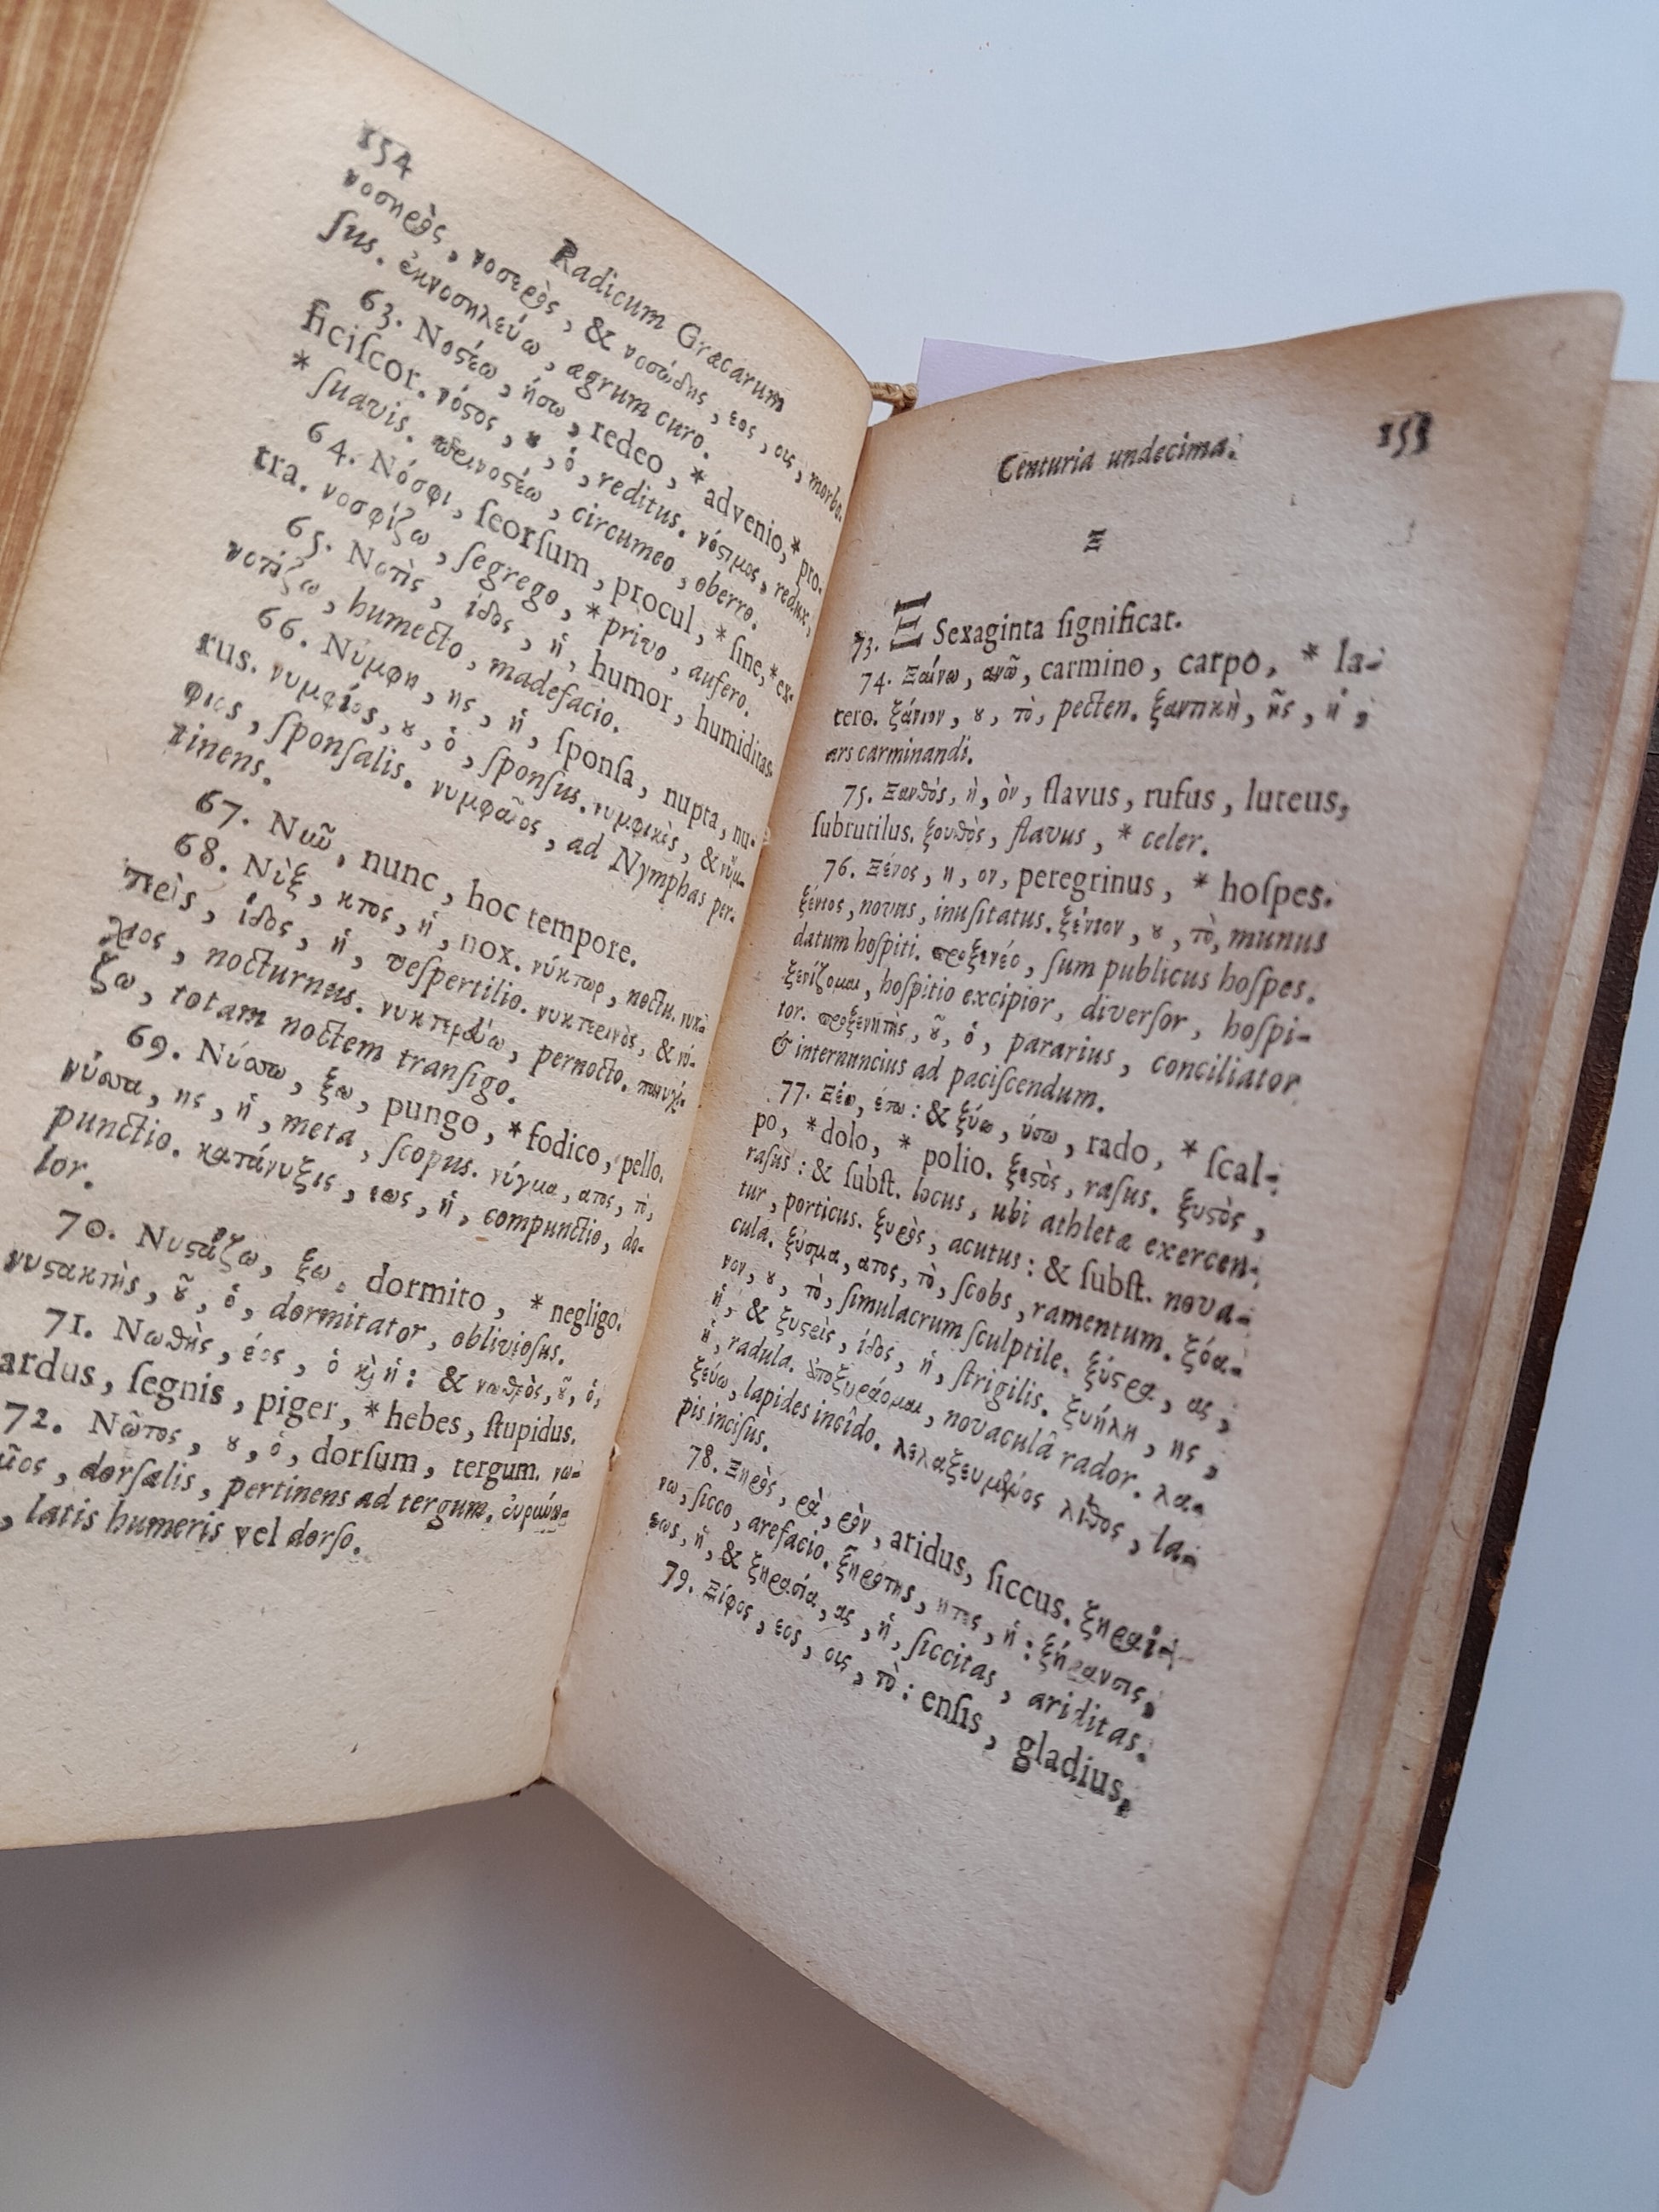 154
Radicum Græcarum
νοσηρὸς, νοσερὸς, & νοσώδης, εος, ους, morbo-
ſus. ἐκνοσηλεύω, ægrum curo.
63. Νοϛέω, ήσω, redeo, * advenio, * pro-
ficiſcor. νόϛος, ȣ, ὁ, reditus. νόϛιμος, redux,
* ſuavis. περινοϛέω, circumeo, oberro.
64. Νόσφι, ſeorſum, procul, * ſine, * ex-
tra. νοσφίζω, ſegrego, * privo, aufero.
65. Νοτὶς, ίδος, ἡ, humor, humiditas.
νοτίζω, humecto, madefacio.
66. Νύμφη, ης, ἡ, ſponſa, nupta, nu-
rus. νυμφίος, ȣ, ὁ, ſponſus. νυμφικὸς, & νύμ-
φιος, ſponſalis. νυμφαῖος, ad Nymphas per-
tinens.
67. Νῦν, nunc, hoc tempore.
68. Νὺξ, κτος, ἡ, nox. νύκτωρ, noctu. νυκ-
τερὶς, ίδος, ἡ, veſpertilio. νυκτερινὸς, & νύ-
χιος, nocturnus. νυκτερεύω, pernocto. παννυχί-
ζω, totam noctem tranſigo.
69. Νύσσω, ξω, pungo, * fodico, pello.
νύσσα, ης, ἡ, meta, ſcopus. νύγμα, ατος, τὸ,
punctio. κατάνυξις, εως, ἡ, compunctio, do-
lor.
70. Νυϛάζω, ξω, dormito, * negligo.
νυϛακτὴς, ȣ͂, ὁ, dormitator, oblivioſus.
71. Νωθὴς, έος, ὁ κὶ ἡ: & νωθρὸς, ȣ͂, ὁ,
ardus, ſegnis, piger, * hebes, ſtupidus.
72. Νῶτος, ȣ, ὁ, dorſum, tergum. νω-
dorſalis, pertinens ad tergum.
, latis humeris vel dorſo.
Centuria undecima.
155
Ξ
73. Ξ Sexaginta ſignificat.
74. Ξαίνω, ανῶ, carmino, carpo, * la-
cero. ξάνιον, ȣ, τὸ, pecten. ξαντικὴ, ῆς, ἡ,
ars carminandi.
75. Ξανθὸς, ὴ, ὸν, flavus, rufus, luteus,
ſubrutilus. ξουθὸς, flavus, * celer.
76. Ξένος, η, ον, peregrinus, * hoſpes.
ξένιος, novus, inuſitatus. ξένιον, ȣ, τὸ, munus
datum hoſpiti. προξενέο, ſum publicus hoſpes.
ξενίζομαι, hoſpitio excipior, diverſor, hoſpi-
tor. προξενητὴς, ȣ͂, ὁ, pararius, conciliator
& internuncius ad paciſcendum.
77. Ξέω, έσω: & ξύω, ύσω, rado, * ſcal-
po, * dolo, * polio. ξεϛὸς, raſus. ξυϛὸς,
raſus: & ſubſt. locus, ubi athletæ exercen-
tur, porticus. ξυρὸς, acutus: & ſubſt. nova-
cula. ξύσμα, ατος, τὸ, ſcobs, ramentum. ξόα-
νον, ȣ, τὸ, ſimulacrum ſculptile. ξύϛρα, ας,
ἡ, & ξυϛρὶς, ίδος, ἡ, ſtrigilis. ξυήλη, ης,
ἡ, radula. ἀποξυράομαι, novaculâ rador. λα-
ξεύω, lapides incîdo. λελαξευμένος λίθος, la-
pis inciſus.
78. Ξηρὸς, ρὰ, ρὸν, aridus, ſiccus. ξηραί-
νω, ſicco, arefacio. ξηρότης, ητος, ἡ: ξήρανσις,
εως, ἡ, & ξηρασία, ας, ἡ, ſiccitas, ariditas.
79. Ξίφος, εος, ους, τὸ: enſis, gladius,